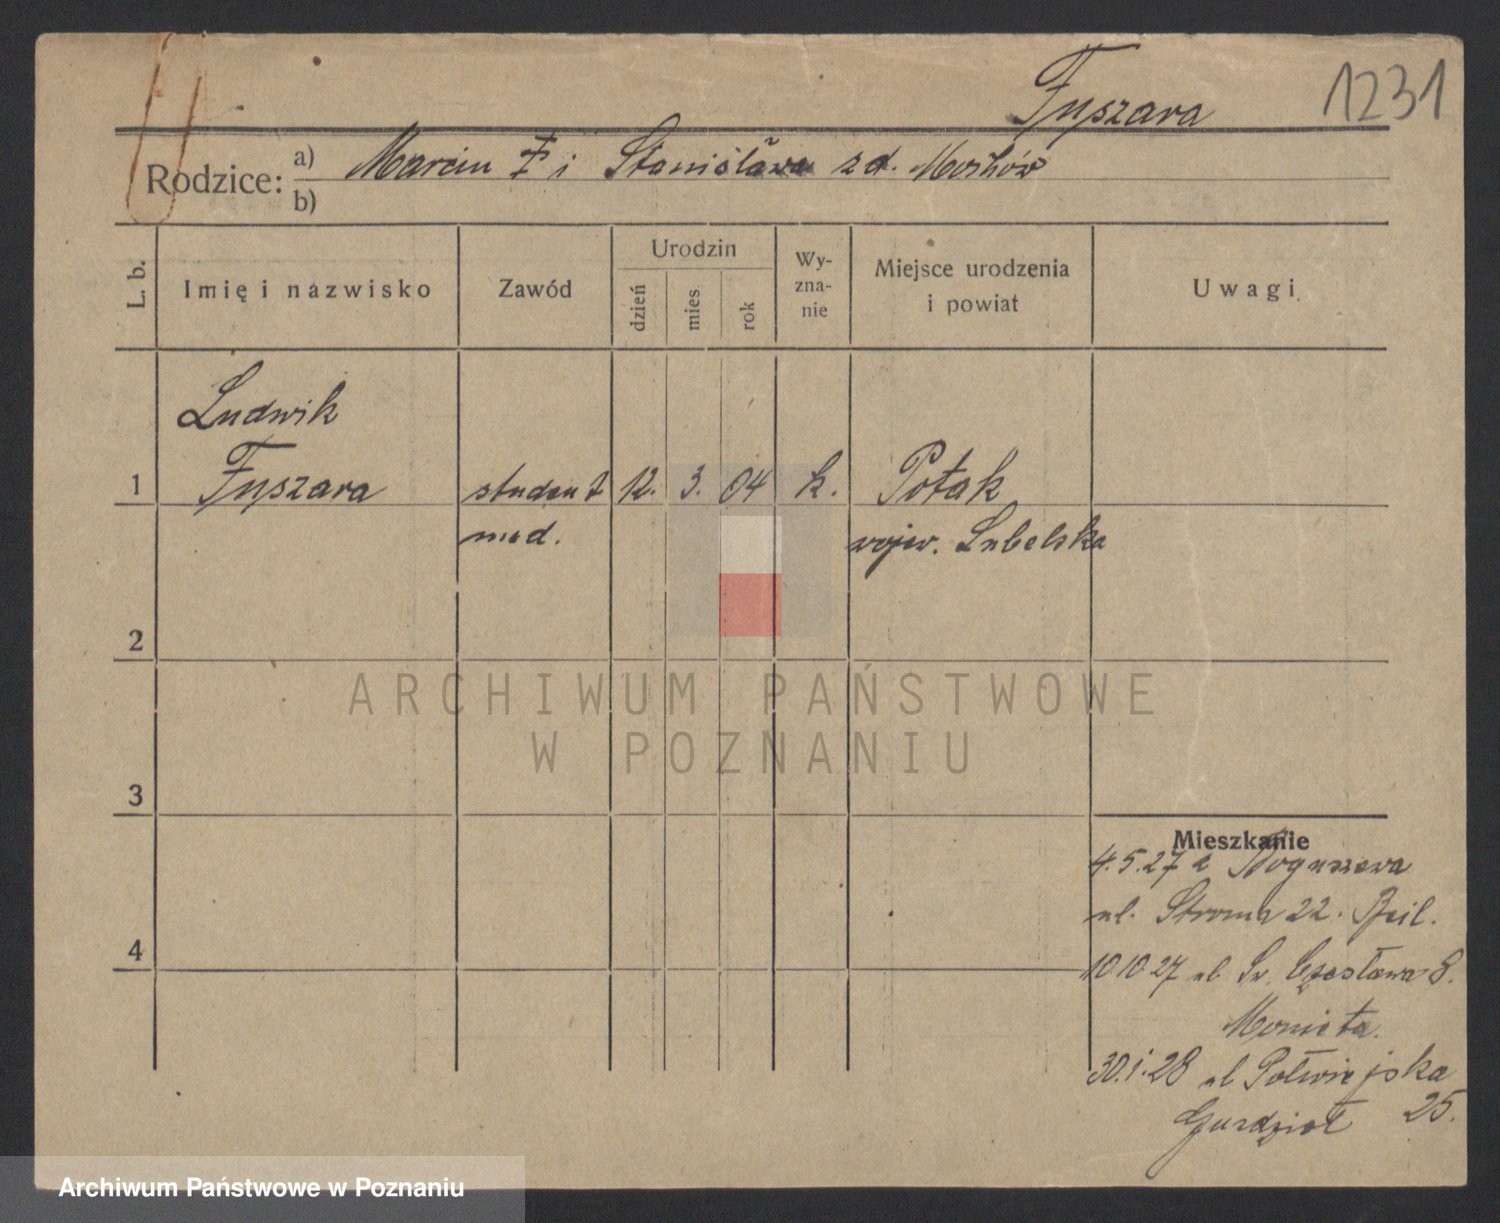 Fyszara 1231
Rodzice: a) Marcin F i Stanisława zd. Mosków
b)
L. b. Imię i nazwisko Zawód Urodzin dzień mies rok Wyznanie Miejsce urodzenia i powiat Uwagi
Ludwik
1 Fyszara student 12. 3. 04 k. Potak
med. wojew. Lubelska
2
ARCHIWUM PAŃSTWOWE
W POZNANIU
3
Mieszkanie
4.5.27 z
ul. Stroma 22.
4
10 10 27 ul Św. Czesława 8.
Monieta.
30.1.28 ul Półwiejska
25.
Archiwum Państwowe w Poznaniu